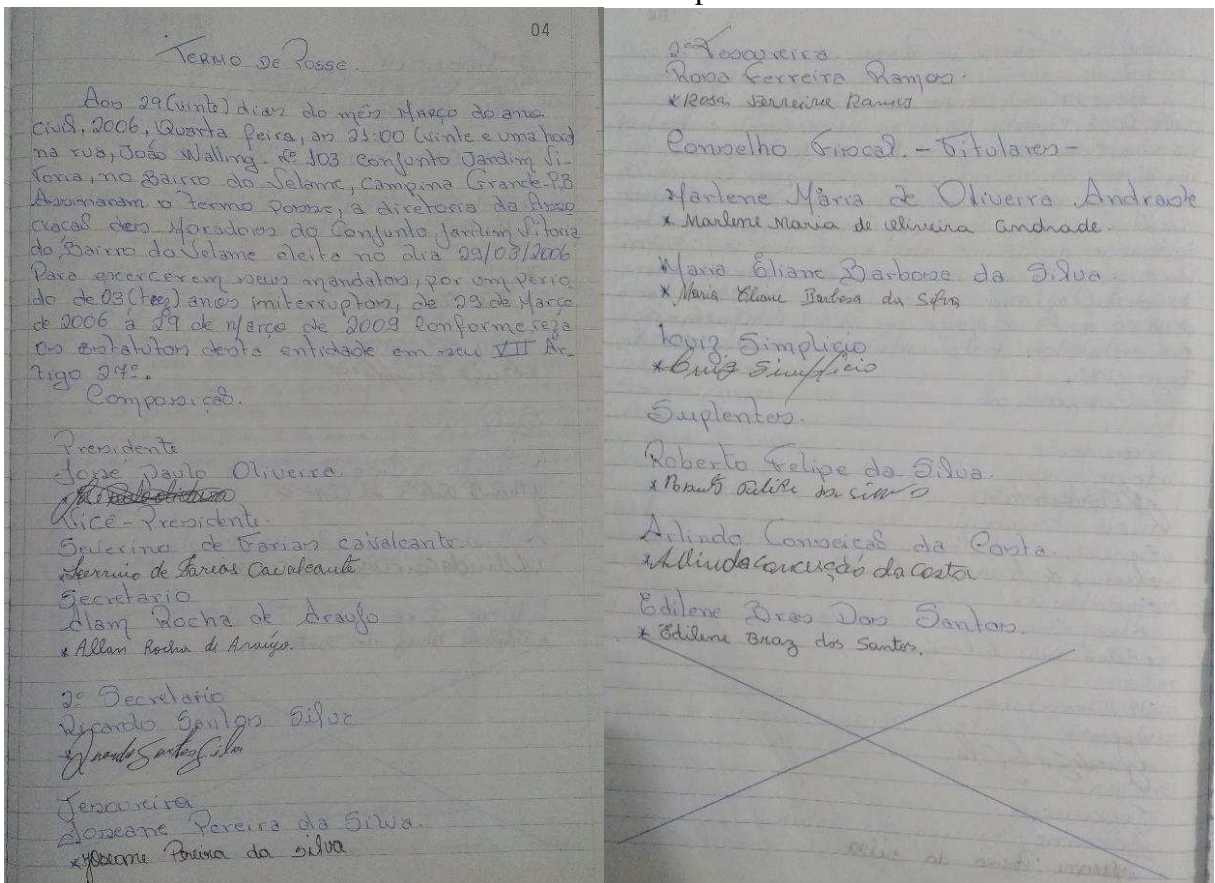 04
Termo de Posse.
Aos 29 (vinte) dias do mês Março do ano
civil, 2006, Quarta feira, as 21:00 (vinte e uma hora)
na rua, João Walling. Nº 103 conjunto Jardim Vi-
toria, no Bairro do Velame, Campina Grande-PB
Assinaram o termo Posse, a diretoria da Asso
ciacaõ dos Moradores do Conjunto Jardim Vitoria
do Bairro do Velame eleita no dia 29/03/2006
Para exercerem seus mandatos, por um perio
do de 03 (tres) anos initerruptos, de 29 de Março
de 2006 à 29 de Março de 2009 Conforme reza
os estatutos desta entidade em seu VII Ar-
tigo 27º.
Composicaõ.
Presidente
José Paulo Oliveira.
Vice-Presidente.
Severino de Farias cavalcante.
Severino de Farias Cavalcante
Secretario
Alam Rocha de Araujo
* Allan Rocha de Araújo.
2º Secretario
Ricardo Santos Silva
* Ricardo Santos Silva
Tesoureira
Joseane Pereira da Silva.
* Joseane Pereira da silva
2ª Tesoureira
Rosa Ferreira Ramos.
* Rosa Ferreira Ramos
Conselho Fiscal. - Titulares -
Marlene Mària de Oliveira Andrade
* Marlene Maria de oliveira andrade.
Maria Eliane Barbosa da Silva
* Maria Eliane Barbosa da Silva
Luiz Simplicio
* Luiz Simplicio
Suplentes.
Roberto Felipe da Silva.
* Roberto Felipe da silva
Arlindo Conseicaõ da Costa
* Arlindo Conceição da Costa
Edilene Bras Dos Santos.
* Edilene Braz dos Santos.